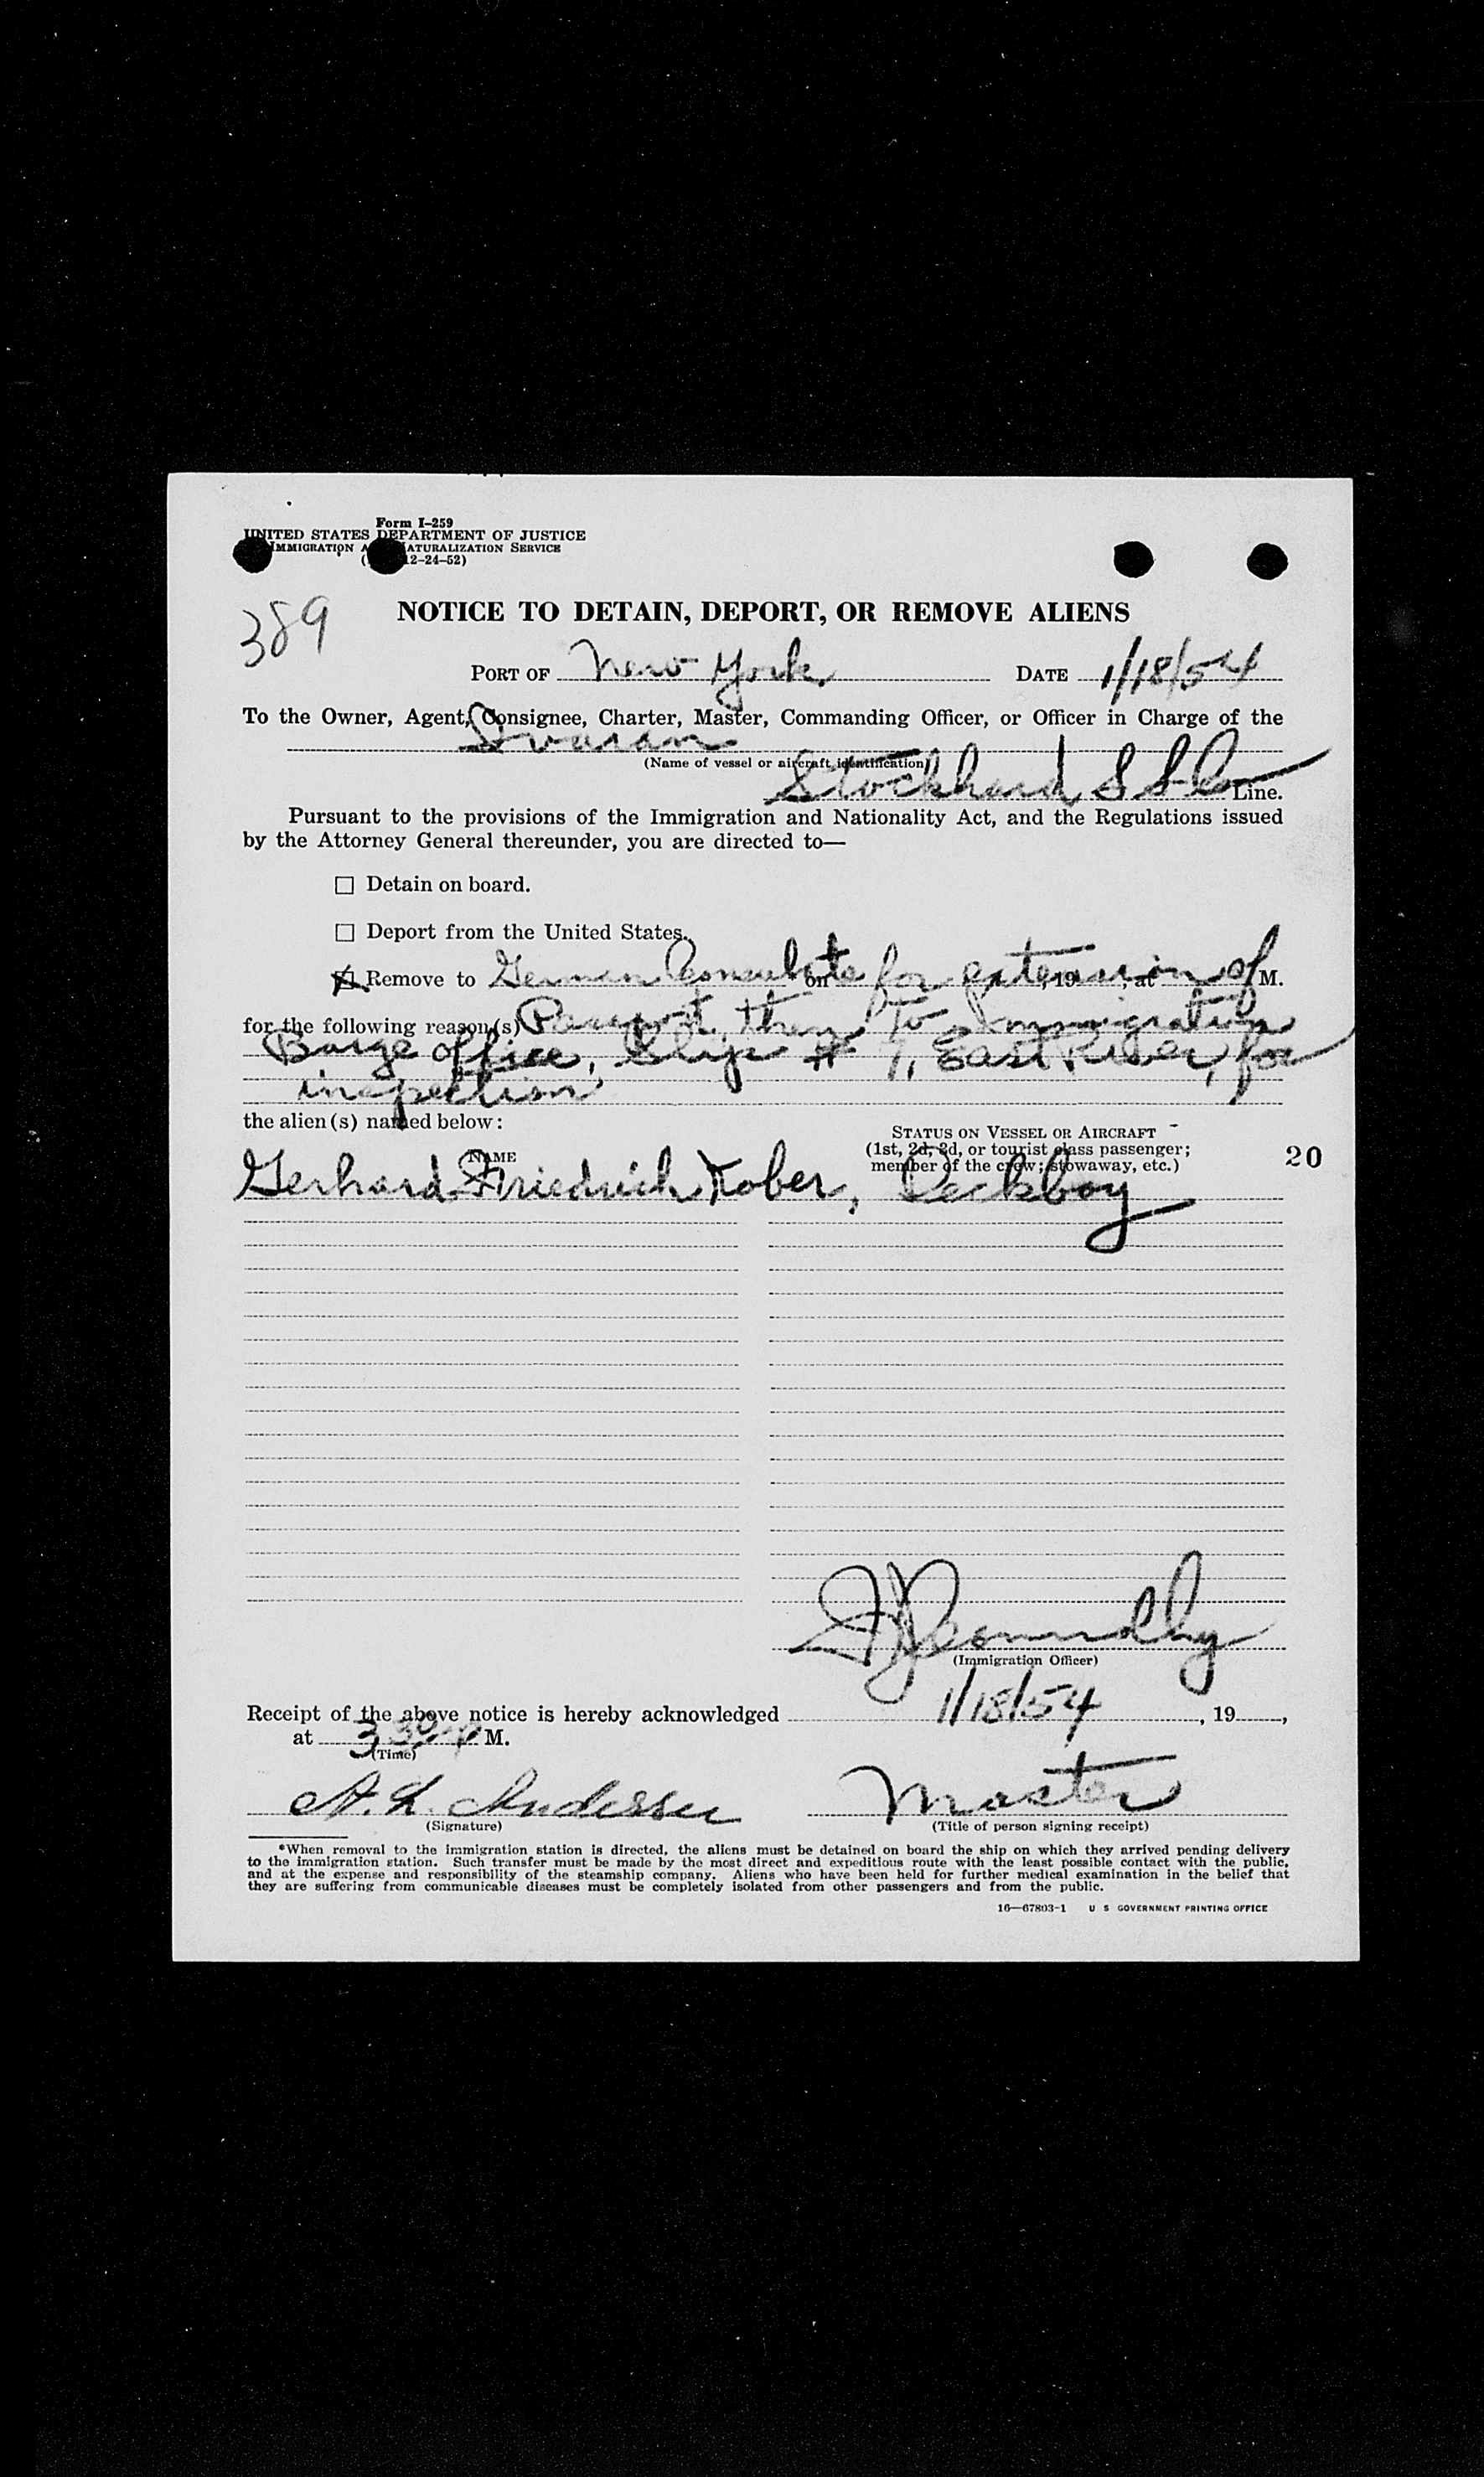 Form I-259
UNITED STATES DEPARTMENT OF JUSTICE
IMMIGRATION A NATURALIZATION SERVICE
( 12-24-52)
389
NOTICE TO DETAIN, DEPORT, OR REMOVE ALIENS
PORT OF New York, DATE 1/18/54
To the Owner, Agent, Consignee, Charter, Master, Commanding Officer, or Officer in Charge of the
(Name of vessel or aircraft identification)
Stockhard S S Co Line.
Pursuant to the provisions of the Immigration and Nationality Act, and the Regulations issued
by the Attorney General thereunder, you are directed to—
☐ Detain on board.
☐ Deport from the United States.
☒ Remove to German Consulate for extension of on , 19 , at M.
for the following reason(s) Passport, then to Immigration
Barge office, Slip # 7, East River, for
inspection
the alien(s) named below:
NAME
STATUS ON VESSEL OR AIRCRAFT
(1st, 2d, 3d, or tourist class passenger;
member of the crew; stowaway, etc.)
20
Gerhard Friedrich Kober, Deckboy
(Immigration Officer)
Receipt of the above notice is hereby acknowledged 1/18/54, 19 ,
at 3 30 p M.
(Time)
Master
(Signature) (Title of person signing receipt)
*When removal to the immigration station is directed, the aliens must be detained on board the ship on which they arrived pending delivery
to the immigration station. Such transfer must be made by the most direct and expeditious route with the least possible contact with the public,
and at the expense and responsibility of the steamship company. Aliens who have been held for further medical examination in the belief that
they are suffering from communicable diseases must be completely isolated from other passengers and from the public.
16—67803-1 U S GOVERNMENT PRINTING OFFICE